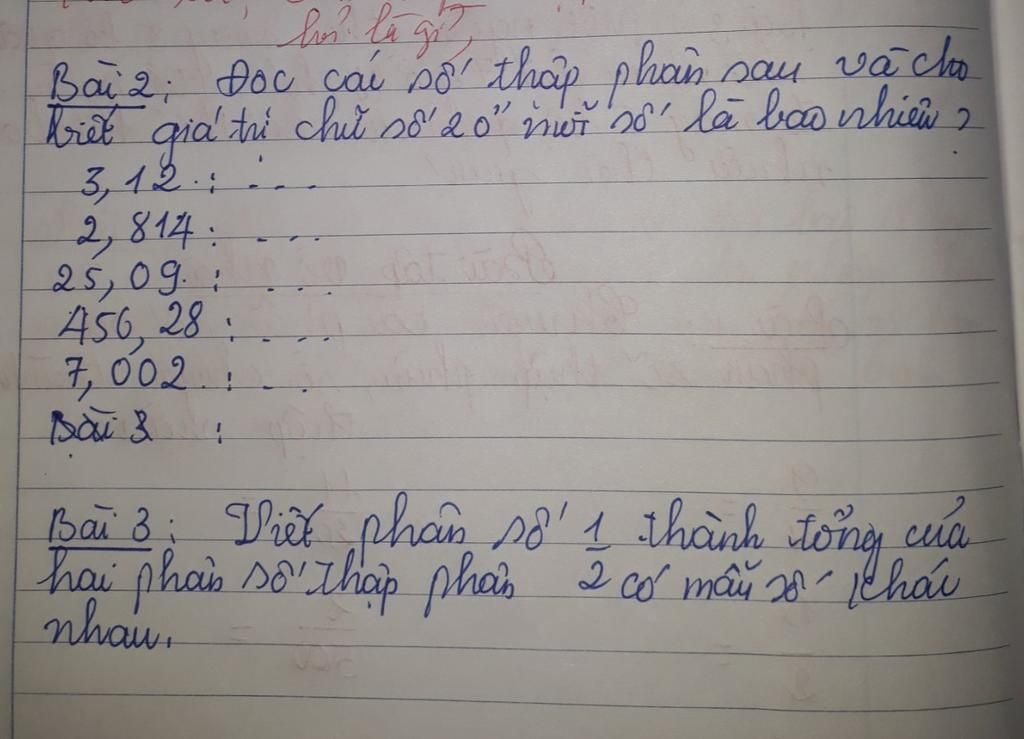 hỏi là gì?
Bài 2: Đọc các số thập phân sau và cho
biết giá trị chữ số 2 ở mỗi số là bao nhiêu?
3,12 : ...
2,814 : ...
25,09 : ...
456,28 : ...
7,002 : ...
Bài 3 :
Bài 3: Viết phân số 1/2 thành tổng của
hai phân số thập phân có mẫu số khác
nhau.